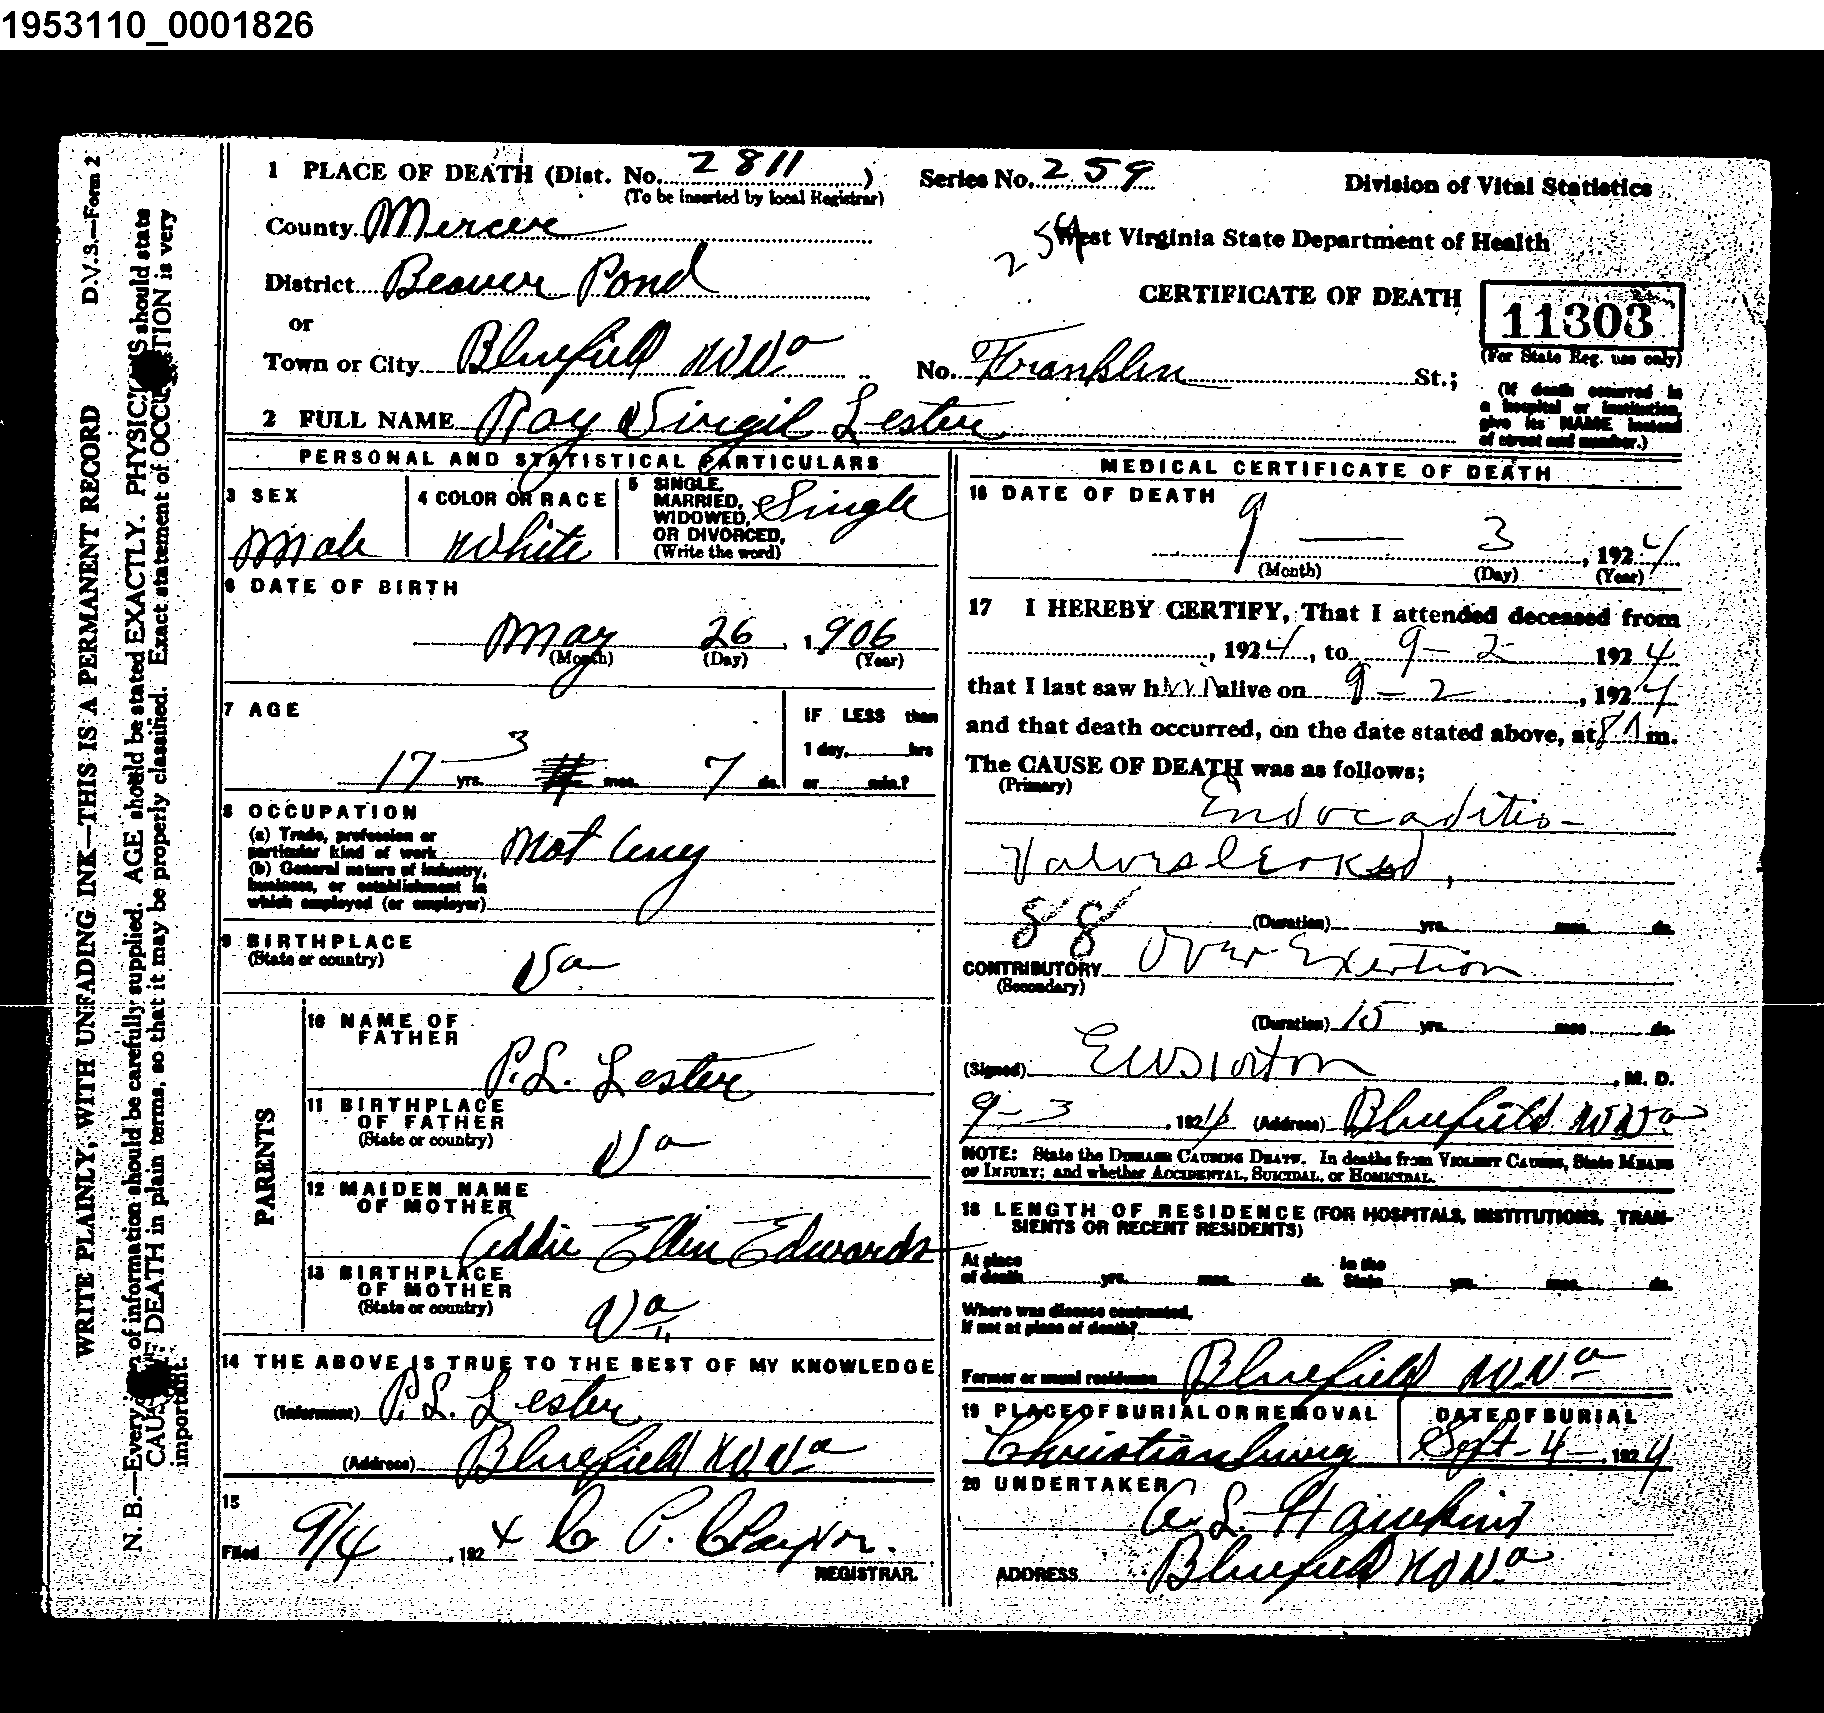 1953110_0001826
D.V.S.—Form 2
WRITE PLAINLY, WITH UNFADING INK—THIS IS A PERMANENT RECORD
N. B.—Every of information should be carefully supplied. AGE should be stated EXACTLY. PHYSICIANS should state
CAUSE DEATH in plain terms, so that it may be properly classified. Exact statement of OCCUPATION is very
important.
1 PLACE OF DEATH (Dist. No. 2811 )
(To be inserted by local Registrar)
County Mercer
District Beaver Pond
or
Town or City Bluefield W Va
2 FULL NAME Roy Virgil Lester
Series No. 259
259
Division of Vital Statistics
West Virginia State Department of Health
CERTIFICATE OF DEATH
11303
(For State Reg. use only)
No. Franklin St.;
(If death occurred in
a hospital or institution,
give its NAME instead
of street and number.)
PERSONAL AND STATISTICAL PARTICULARS
3 SEX
Male
4 COLOR OR RACE
White
5 SINGLE,
MARRIED,
WIDOWED,
OR DIVORCED,
(Write the word)
Single
6 DATE OF BIRTH
May 26, 1906
(Month) (Day) (Year)
7 AGE
17 yrs. 3 mos. 7 ds.
IF LESS than
1 day, hrs
or min.?
8 OCCUPATION
(a) Trade, profession or
particular kind of work
(b) General nature of industry,
business, or establishment in
which employed (or employer)
Not any
9 BIRTHPLACE
(State or country)
Va
PARENTS
10 NAME OF
FATHER
P. L. Lester
11 BIRTHPLACE
OF FATHER
(State or country)
Va
12 MAIDEN NAME
OF MOTHER
Addie Ellen Edwards
13 BIRTHPLACE
OF MOTHER
(State or country)
Va
14 THE ABOVE IS TRUE TO THE BEST OF MY KNOWLEDGE
(Informant) P. L. Lester
(Address) Bluefield W. Va
15
Filed 9/4, 1924
REGISTRAR.
MEDICAL CERTIFICATE OF DEATH
16 DATE OF DEATH
9 — 3, 1924
(Month) (Day) (Year)
17 I HEREBY CERTIFY, That I attended deceased from
, 1924, to 9-2 1924
that I last saw him alive on 9-2, 1924
and that death occurred, on the date stated above, at 8 A m.
The CAUSE OF DEATH was as follows;
(Primary)
Endocaditis-
Valves leaked,
(Duration) yrs. mos. ds.
88
CONTRIBUTORY Over Exertion
(Secondary)
(Duration) 15 yrs. mos. ds.
(Signed) , M. D.
9-3, 1924 (Address) Bluefield W Va
NOTE: State the DISEASE CAUSING DEATH. In deaths from VIOLENT CAUSES, State MEANS
OF INJURY; and whether ACCIDENTAL, SUICIDAL, or HOMICIDAL.
18 LENGTH OF RESIDENCE (FOR HOSPITALS, INSTITUTIONS, TRAN-
SIENTS OR RECENT RESIDENTS)
At place
of death yrs. mos. ds. In the
State yrs. mos. ds.
Where was disease contracted,
if not at place of death?
Former or usual residence Bluefield W. Va
19 PLACE OF BURIAL OR REMOVAL
Christiansburg
DATE OF BURIAL
Sept-4-, 1924
20 UNDERTAKER
A. L. Hawkins
ADDRESS Bluefield W Va